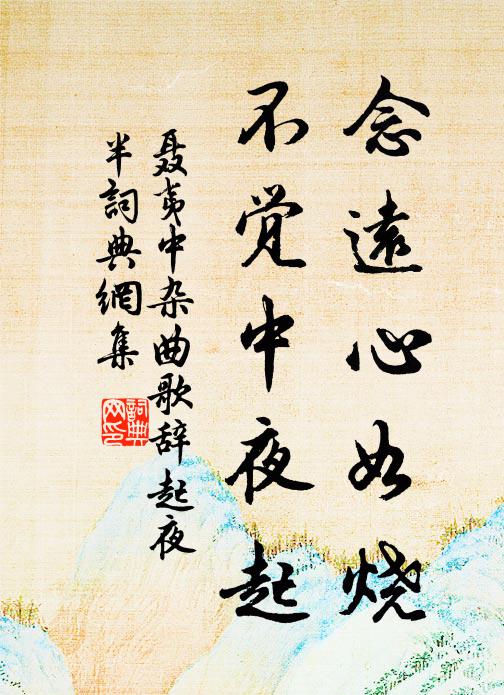 念遠心如烧
不觉中夜起
聂夷中杂曲歌辞起夜
半詞典網集
詞典
网印